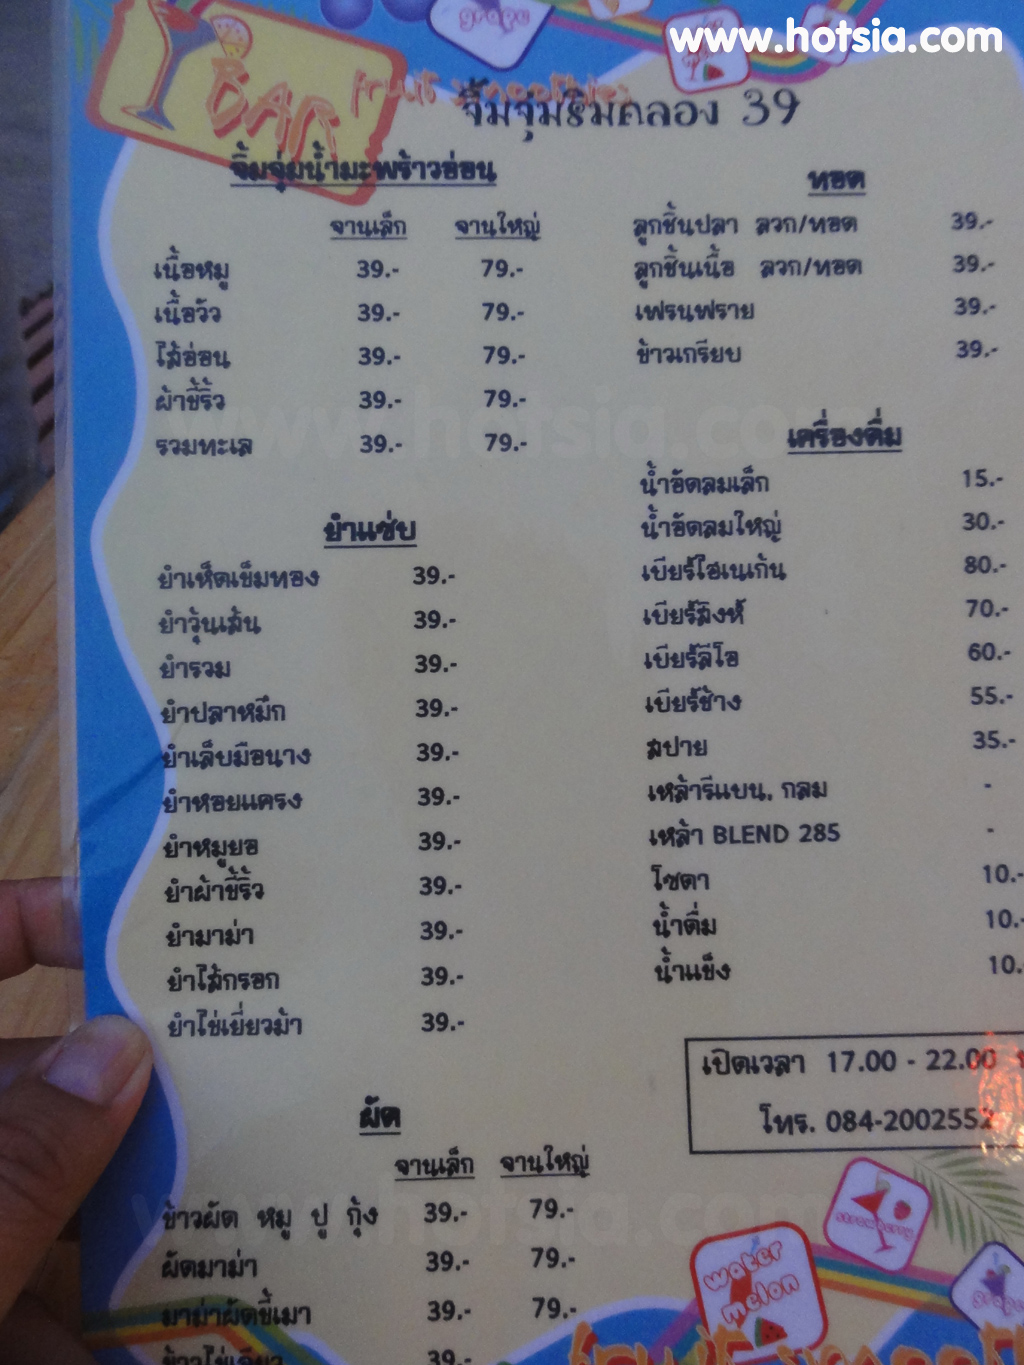 www.hotsia.com
grape
BAR fruit smoothies
จิ้มจุ่มริมคลอง 39
จิ้มจุ่มน้ำมะพร้าวอ่อน
จานเล็ก จานใหญ่
เนื้อหมู 39.- 79.-
เนื้อวัว 39.- 79.-
ไส้อ่อน 39.- 79.-
ผ้าขี้ริ้ว 39.- 79.-
รวมทะเล 39.- 79.-
ยำแซ่บ
ยำเห็ดเข็มทอง 39.-
ยำวุ้นเส้น 39.-
ยำรวม 39.-
ยำปลาหมึก 39.-
ยำเล็บมือนาง 39.-
ยำหอยแครง 39.-
ยำหมูยอ 39.-
ยำผ้าขี้ริ้ว 39.-
ยำมาม่า 39.-
ยำไส้กรอก 39.-
ยำไข่เยี่ยวม้า 39.-
ผัด
จานเล็ก จานใหญ่
ข้าวผัด หมู ปู กุ้ง 39.- 79.-
ผัดมาม่า 39.- 79.-
มาม่าผัดขี้เมา 39.- 79.-
ข้าวไข่เจียว 39.-
ทอด
ลูกชิ้นปลา ลวก/ทอด 39.-
ลูกชิ้นเนื้อ ลวก/ทอด 39.-
เฟรนฟราย 39.-
ข้าวเกรียบ 39.-
เครื่องดื่ม
น้ำอัดลมเล็ก 15.-
น้ำอัดลมใหญ่ 30.-
เบียร์ไฮเนเก้น 80.-
เบียร์สิงห์ 70.-
เบียร์ลีโอ 60.-
เบียร์ช้าง 55.-
สปาย 35.-
เหล้ารีแบน. กลม -
เหล้า BLEND 285 -
โซดา 10.-
น้ำดื่ม 10.-
น้ำแข็ง 10.
เปิดเวลา 17.00 - 22.00
โทร. 084-2002552
www.hotsia.com
www.hotsia.com
strawberry
water melon
grape
fruit smooth